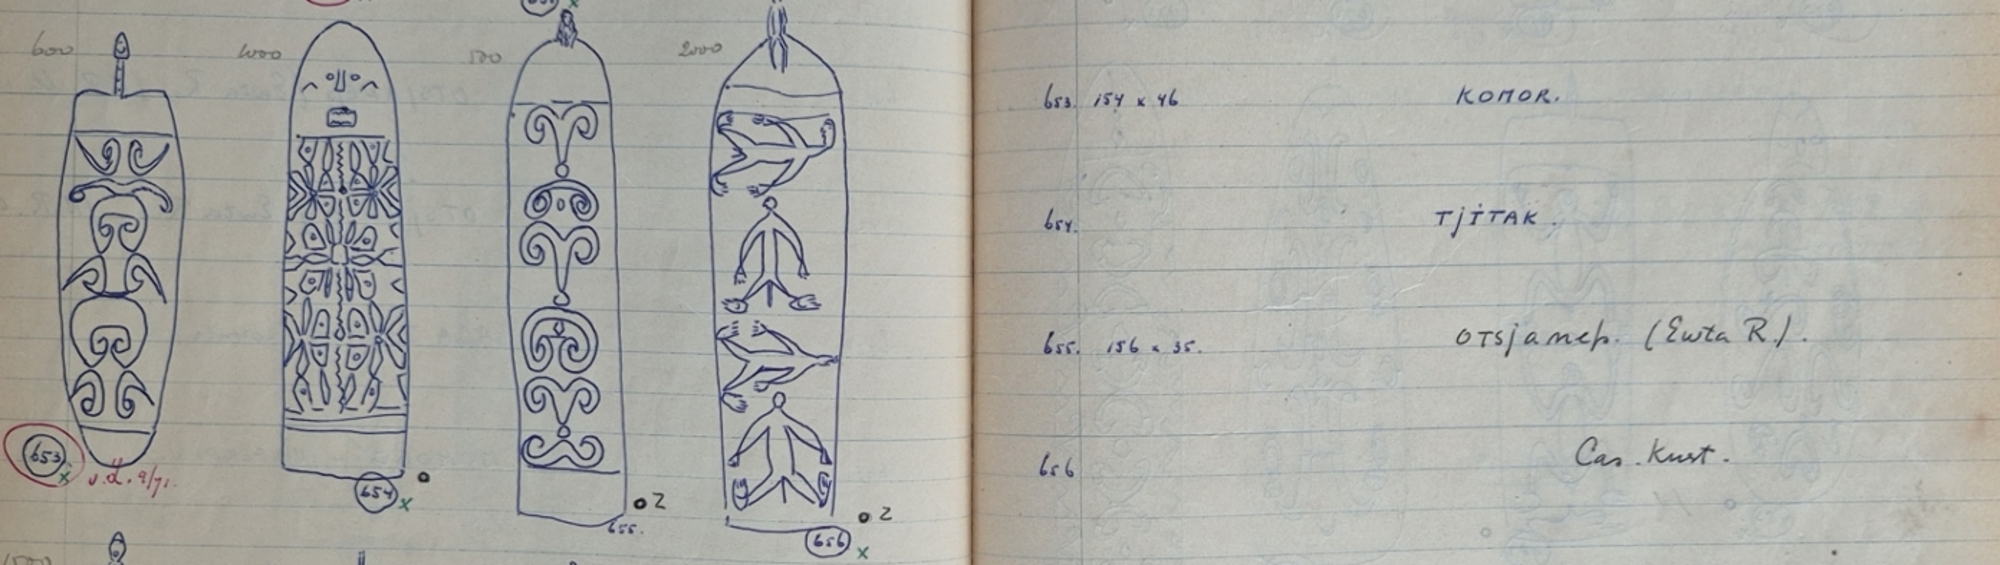 600
1000
500
2000
653 x
v.d. 9/71.
654 x
o
655.
o 2
656 x
o 2
653. 154 x 46 KOMOR.
654. TjITAK.
655. 156 x 35. OTSjANEP. (Ewta R.).
656 Cas. Kust.